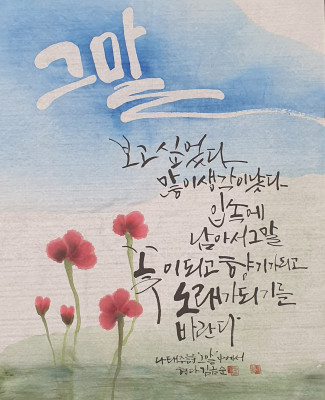 그 말
보고 싶었다
많이 생각이 났다
입 속에
남아서 그 말
꽃이 되고 향기가 되고
노래가 되기를
바란다
나태주님의 '그 말' 中에서